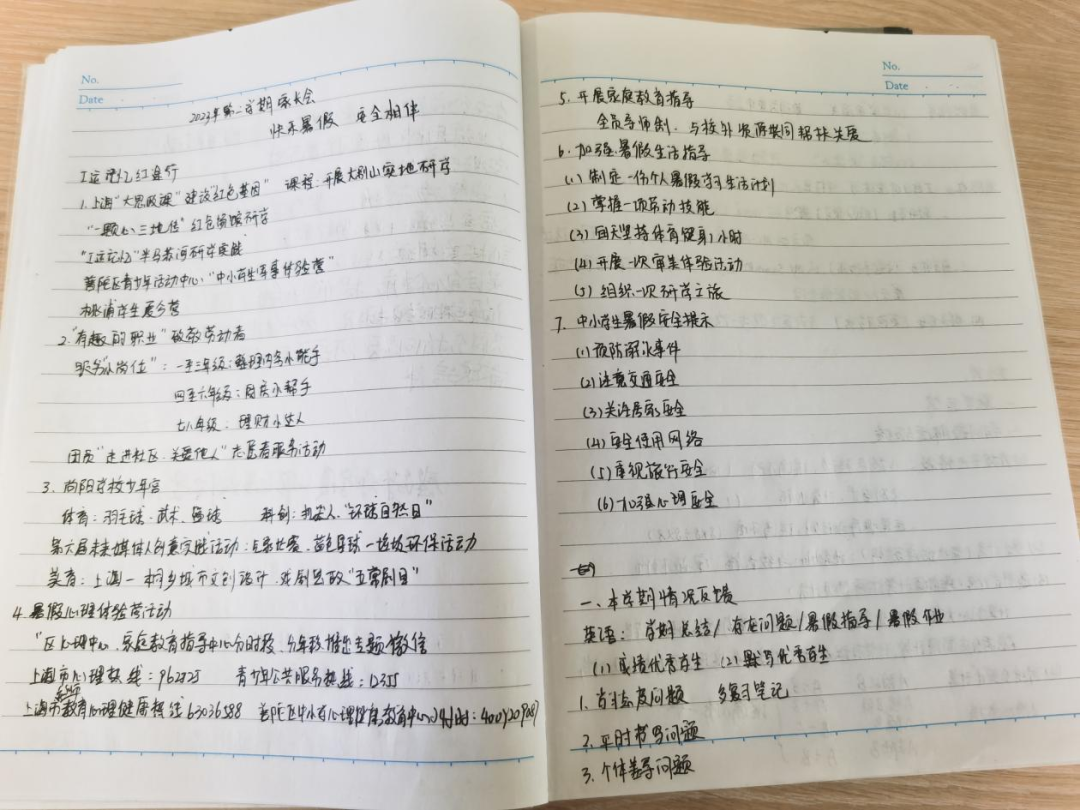 No.
Date
2023年第二学期家长会
快乐暑假 安全相伴
I 追寻红色
1. 上海"大思政课"建设"红色基因" 课程:开展大别山实地研学
"一颗心三地传"红色场馆研学
半马苏河研学实践
普陀区青少年活动中心:"中小学生军事体验营"
桃浦学生夏令营
2. "有趣的职业" 致敬劳动者
服务"小岗位":一至三年级:整理内务小能手
四至六年级:厨房小帮手
七八年级:理财小达人
团员"走进社区、关爱他人"志愿者服务活动
3. 向阳学校少年宫
体育:羽毛球、武术、 科创:机器人、"环球自然日"
第六届未来媒体人创意实践活动:点亮 蓝色星球一 环保活动
美育:上海一 城市文创设计、戏剧
4. 暑假心理体验营活动
"区心理中心、家庭教育指导中心分时段、分年段推出主题微信
上海市心理热线:962525 青少年公共服务热线:12355
上海市教育心理健康热线 63036588 普陀区中小学心理健康教育中心24小时:
No.
Date
5. 开展家庭教育指导
全员导师制、与校外资源共同帮扶
6. 加强暑假生活指导
(1) 制定一份个人暑假学习生活计划
(2) 掌握一项劳动技能
(3) 每天坚持体育健身1小时
(4) 开展一次审美体验活动
(5) 组织一次研学之旅
7. 中小学生暑假安全提示
(1) 预防溺水事件
(2) 注意交通安全
(3) 关注居家安全
(4) 安全使用网络
(5) 重视旅行安全
(6) 加强心理安全
一、本学期情况反馈
英语:学期总结/存在问题/暑假指导/暑假作业
(1) 成绩优秀学生 (2) 默写优秀学生
1. 学习态度问题 多复习笔记
2. 平时书写问题
3. 个体差异问题